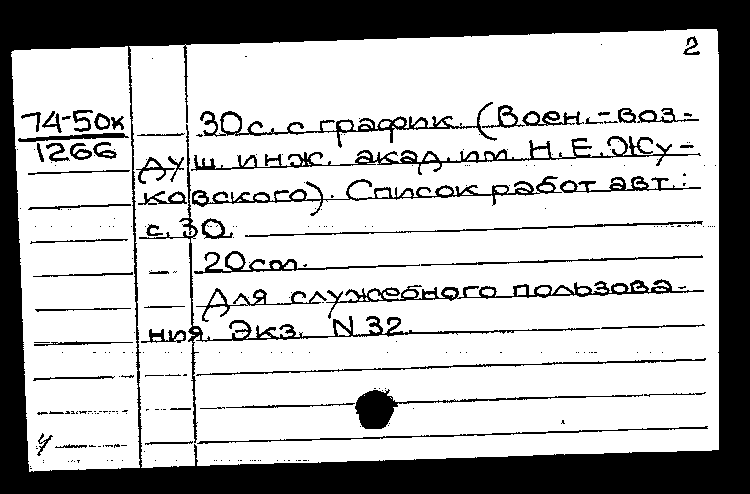 2
74-50к
1266
30с. с график. (Воен.-воз-
душ. инж. акад. им. Н.Е.Жу-
ковского). Список работ авт.:
с. 30.
20см.
Для служебного пользова-
ния. Экз. N 32.